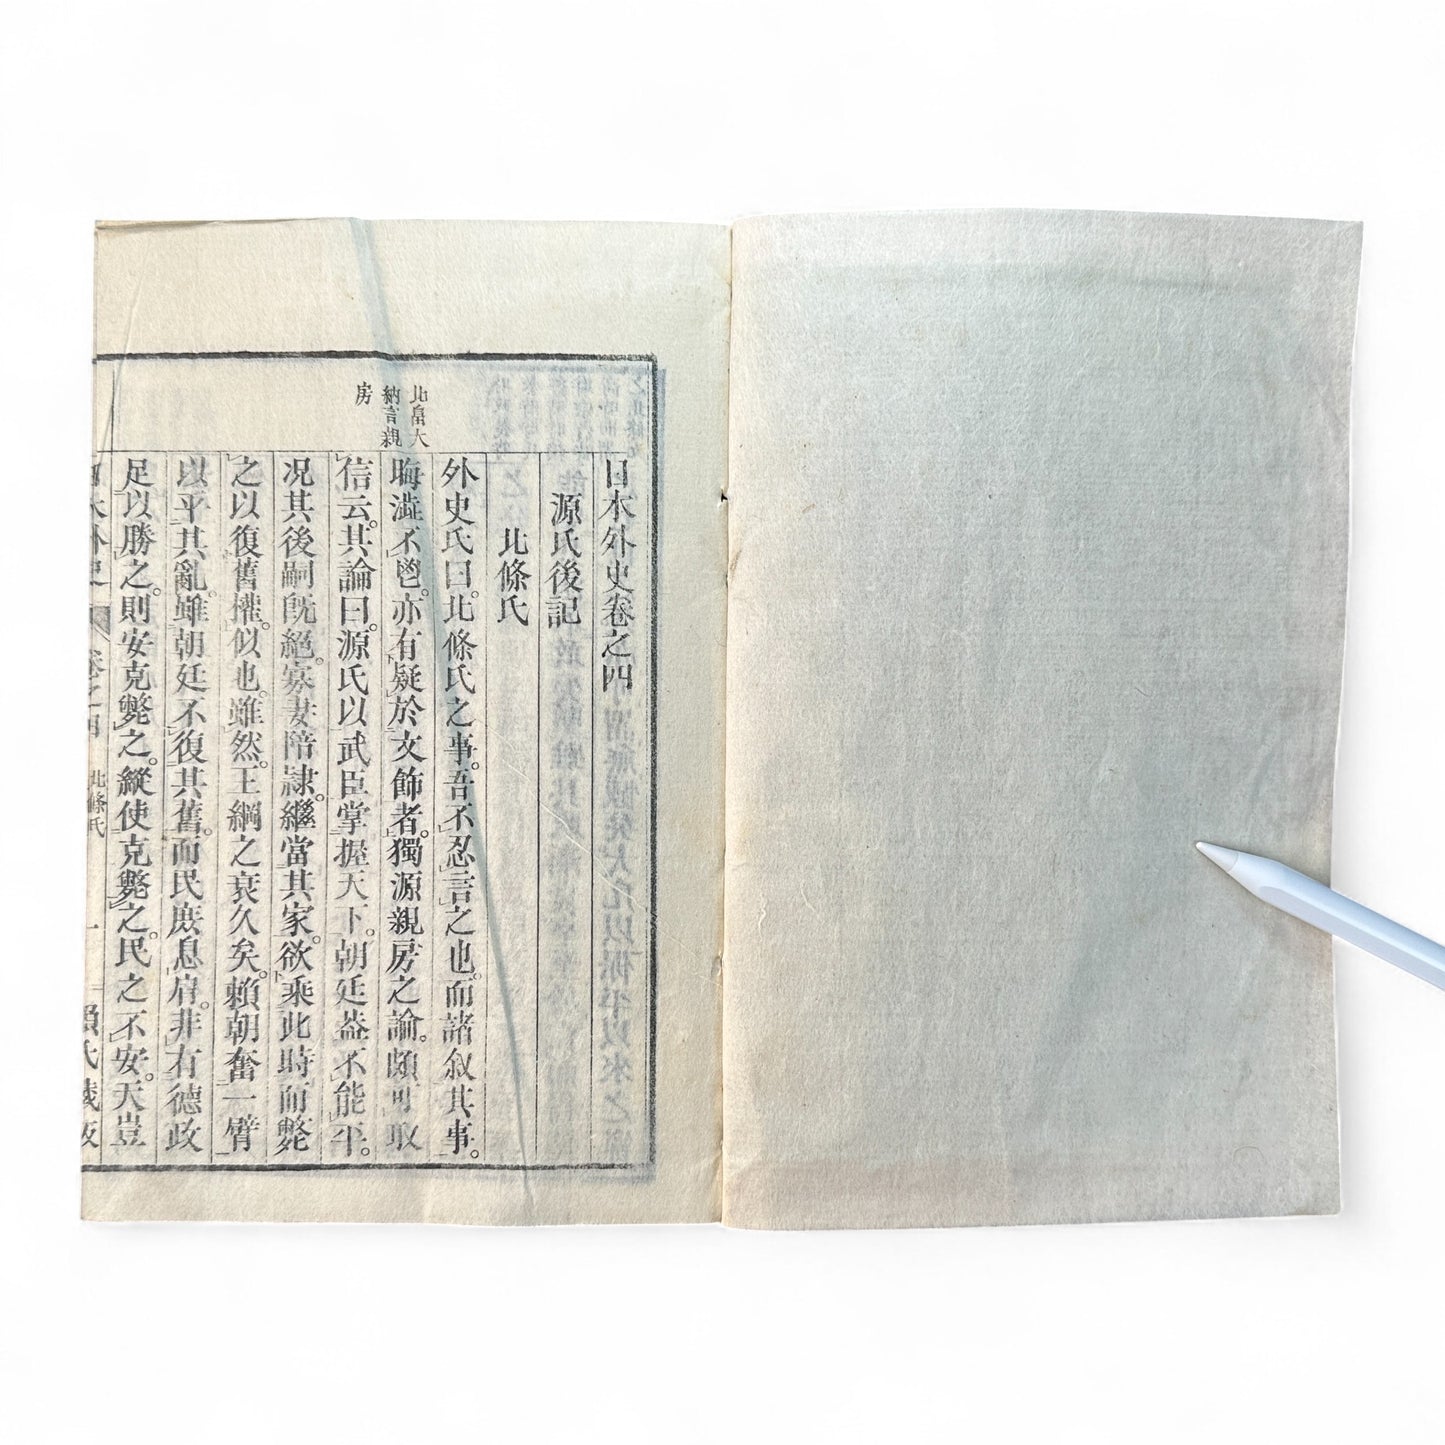 日本外史卷之四
源氏後記
北條氏
北畠大
納言親
房
外史氏曰。北條氏之事。吾不忍言之也。而諸敘其事。
晦澁不鬯。亦有疑於文飾者。獨源親房之論。頗可取
信云。其論曰。源氏以武臣掌握天下。朝廷葢不能平。
况其後嗣旣絕。寡妻陪隷。繼當其家。欲乘此時而斃
之以復舊權。似也。雖然。王綱之衰久矣。賴朝奮一臂
以平其亂。雖朝廷不復其舊。而民庶息肩。非有德政
足以勝之。則安克斃之。縱使克斃之。民之不安。天豈
日本外史
卷之四
北條氏
一
賴氏藏板